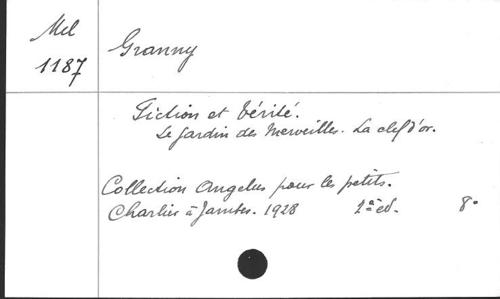 Mel
1187
Granny
Fiction et Vérité.
Le Jardin des Merveilles. La clef d'or.
Collection Angelus pour les petits.
Charlier à Jambes. 1928 2ª éd. 8°